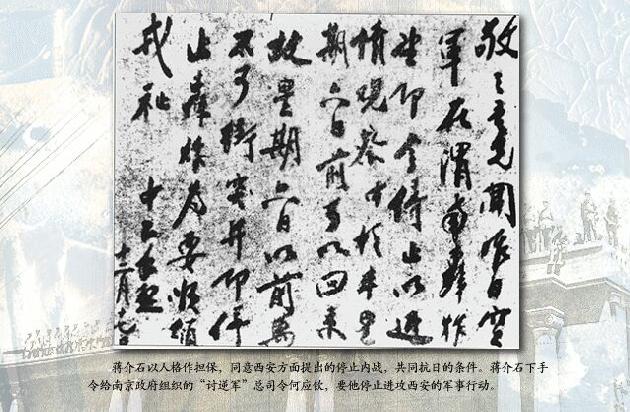 敬之吾兄聞昨日空
軍在渭南轟炸
望即令停止以近
情觀察中於本星
期六日前可以回京
故星期六日以前萬
不可衝突並即停
止轟炸為要順頌
戎祉 中正手啟
十二月十七日
蒋介石以人格作担保，同意西安方面提出的停止内战，共同抗日的条件。蒋介石下手
令给南京政府组织的“讨逆军”总司令何应钦，要他停止进攻西安的军事行动。